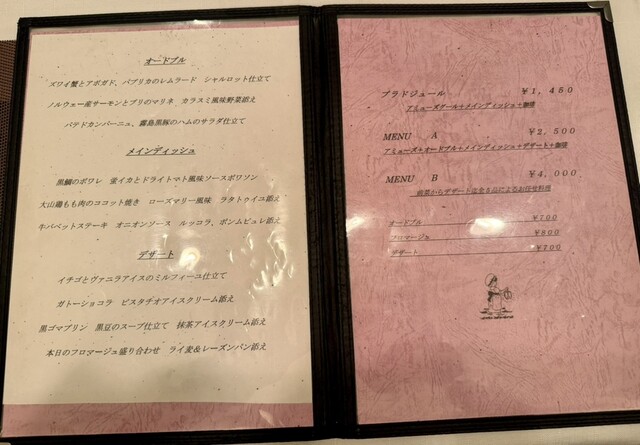 オードブル
ズワイ蟹とアボガド、パプリカのレムラード　シャルロット仕立て
ノルウェー産サーモンとブリのマリネ　カラスミ風味野菜添え
パテドカンパーニュ、霧島黒豚のハムのサラダ仕立て
メインディッシュ
黒鯛のポワレ　蛍イカとドライトマト風味ソースポワソン
大山鶏もも肉のココット焼き　ローズマリー風味　ラタトゥイユ添え
牛バベットステーキ　オニオンソース　ルッコラ、ポンムピュレ添え
デザート
イチゴとヴァニラアイスのミルフィーユ仕立て
ガトーショコラ　ピスタチオアイスクリーム添え
黒ゴマプリン　黒豆のスープ仕立て　抹茶アイスクリーム添え
本日のフロマージュ盛り合わせ　ライ麦＆レーズンパン添え
プラドジュール　￥1，450
アミューズグール+メインディッシュ+珈琲
MENU　A　￥2，500
アミューズ+オードブル+メインディッシュ+デザート+珈琲
MENU　B　￥4，000
前菜からデザート迄全5品によるお任せ料理
オードブル　￥700
フロマージュ　￥800
デザート　￥700